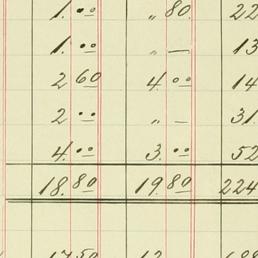 1.00 " 80 22
1.00 " — 13
2 60 4 00 14
2 00 " — 31
4.00 3.00 52
18.80 19.80 224